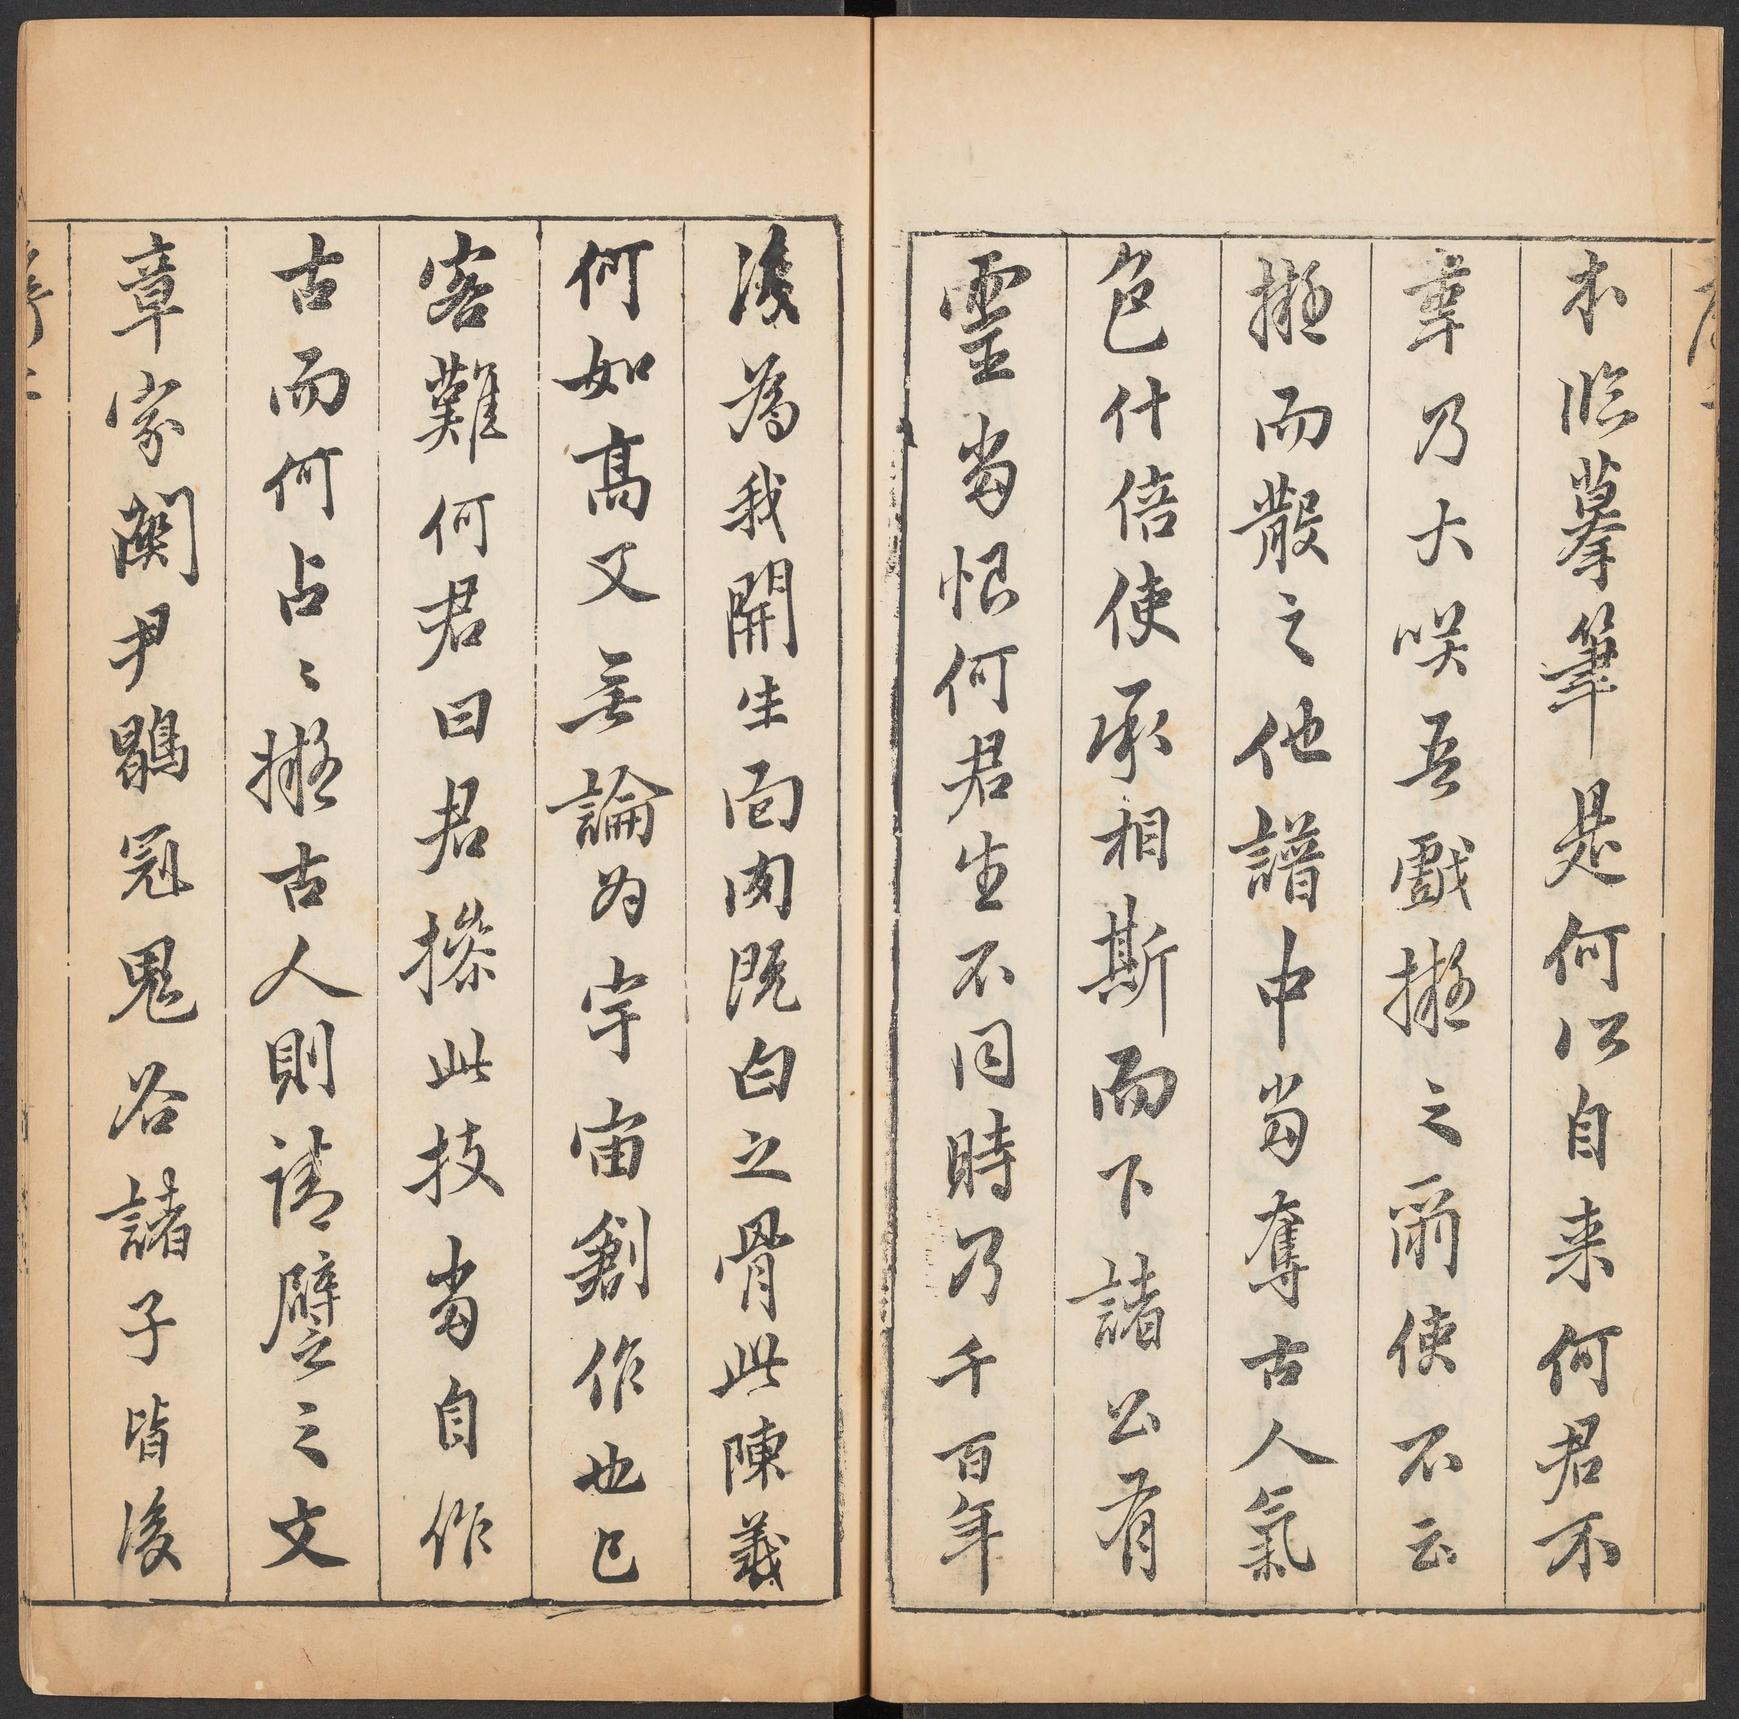 本臨摹筆是何從自来何君不
韋乃大咲吾戲擬之爾使不云
擬而散之他譜中當奪古人氣
色什倍使丞相斯而下諸公有
靈當恨何君生不同時乃千百年
後為我開生面肉既白之骨此陳義
何如高又無論為宇宙創作也已
客難何君曰君操此技當自作
古而何占占擬古人則請譬之文
章家關尹鶡冠鬼谷諸子皆後